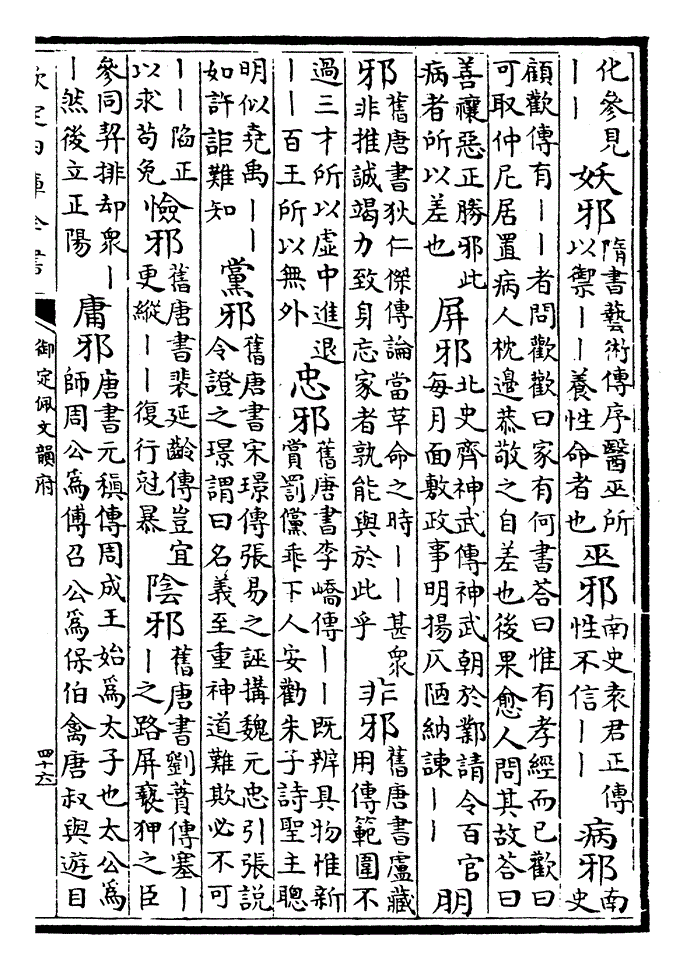 化參見
——
妖邪
隋書藝術傳序醫巫所
以禦——養性命者也
巫邪
南史袁君正傳
性不信——
病邪
南
史
顧歡傳有——者問歡歡曰家有何書荅曰惟有孝經而已歡曰
可取仲尼居置病人枕邊恭敬之自差也後果愈人問其故荅曰
善禳惡正勝邪此
病者所以差也
屏邪
北史齊神武傳神武朝於鄴請令百官
每月面敷政事明揚仄陋納諫——
朋
邪
舊唐書狄仁傑傳論當草命之時——甚衆
非推誠竭力致身忘家者孰能與於此乎
非邪
舊唐書盧藏
用傳範圍不
過三才所以虛中進退
——百王所以無外
忠邪
舊唐書李嶠傳——既辨具物惟新
賞罰儻乖下人安勸朱子詩聖主聰
明似堯禹——
如許詎難知
黨邪
舊唐書宋璟傳張易之誣搆魏元忠引張說
令證之璟謂曰名義至重神道難欺必不可
——陷正
以求苟免
憸邪
舊唐書裴延齡傳豈宜
更縱——復行尅暴
陰邪
舊唐書劉蕡傳塞—
—之路屏䙝狎之臣
參同契排却衆—
—然後立正陽
庸邪
唐書元稹傳周成王始爲太子也太公爲
師周公爲傅召公爲保伯禽唐叔與遊目
欽定四庫全書
御定佩文韻府
四十六